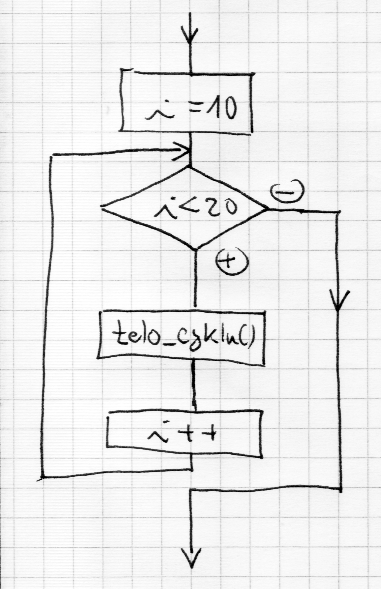 i=10
i<20
−
+
telo_cyklu()
i++